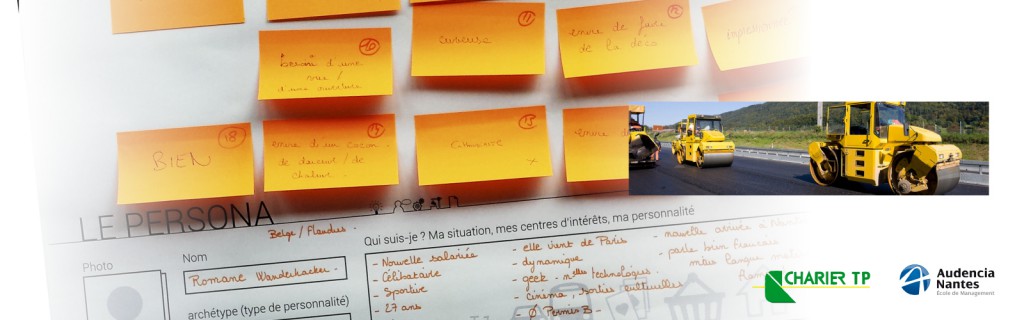 11
12
curieuse
envie de faire
de la déco
10
besoin d'une
vue /
d'une ouverture
18
BIEN
envie d'un cocon
de douceur / de
chaleur.
13
x
envie de
LE PERSONA
Belge / Flandres
Photo
Nom
Romane Wanderhaeker.
archétype (type de personnalité)
Qui suis-je ? Ma situation, mes centres d'intérêts, ma personnalité
- Nouvelle salariée
- Célibataire
- Sportive
- 27 ans
- elle vient de Paris
- dynamique
- geek - nlles technologies.
- cinéma, sorties culturelles
- Ø Permis B -
- nouvelle arrivée à
- parle bien français
CHARIER TP
Audencia
Nantes
École de Management